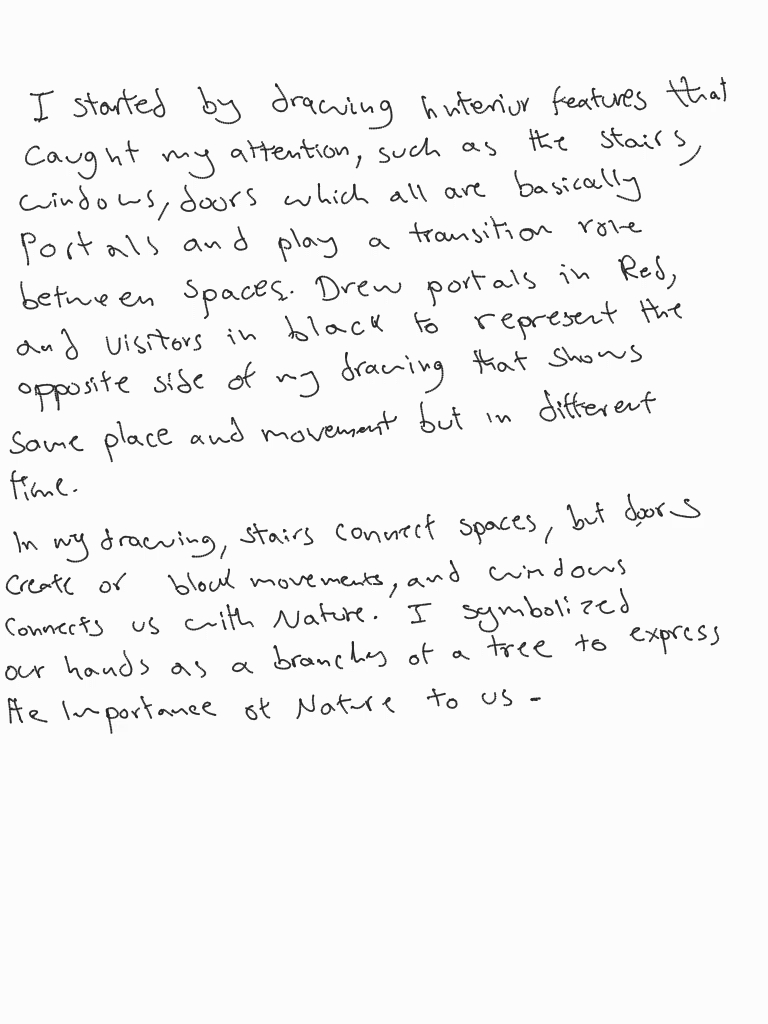 I started by drawing interior features that
caught my attention, such as the stairs,
windows, doors which all are basically
Portals and play a transition role
between spaces. Drew portals in Red,
and visitors in black to represent the
opposite side of my drawing that shows
Same place and movement but in different
time.
In my drawing, stairs connect spaces, but doors
create or block movements, and windows
connects us with Nature. I symbolized
our hands as a branches of a tree to express
the Importance of Nature to us -